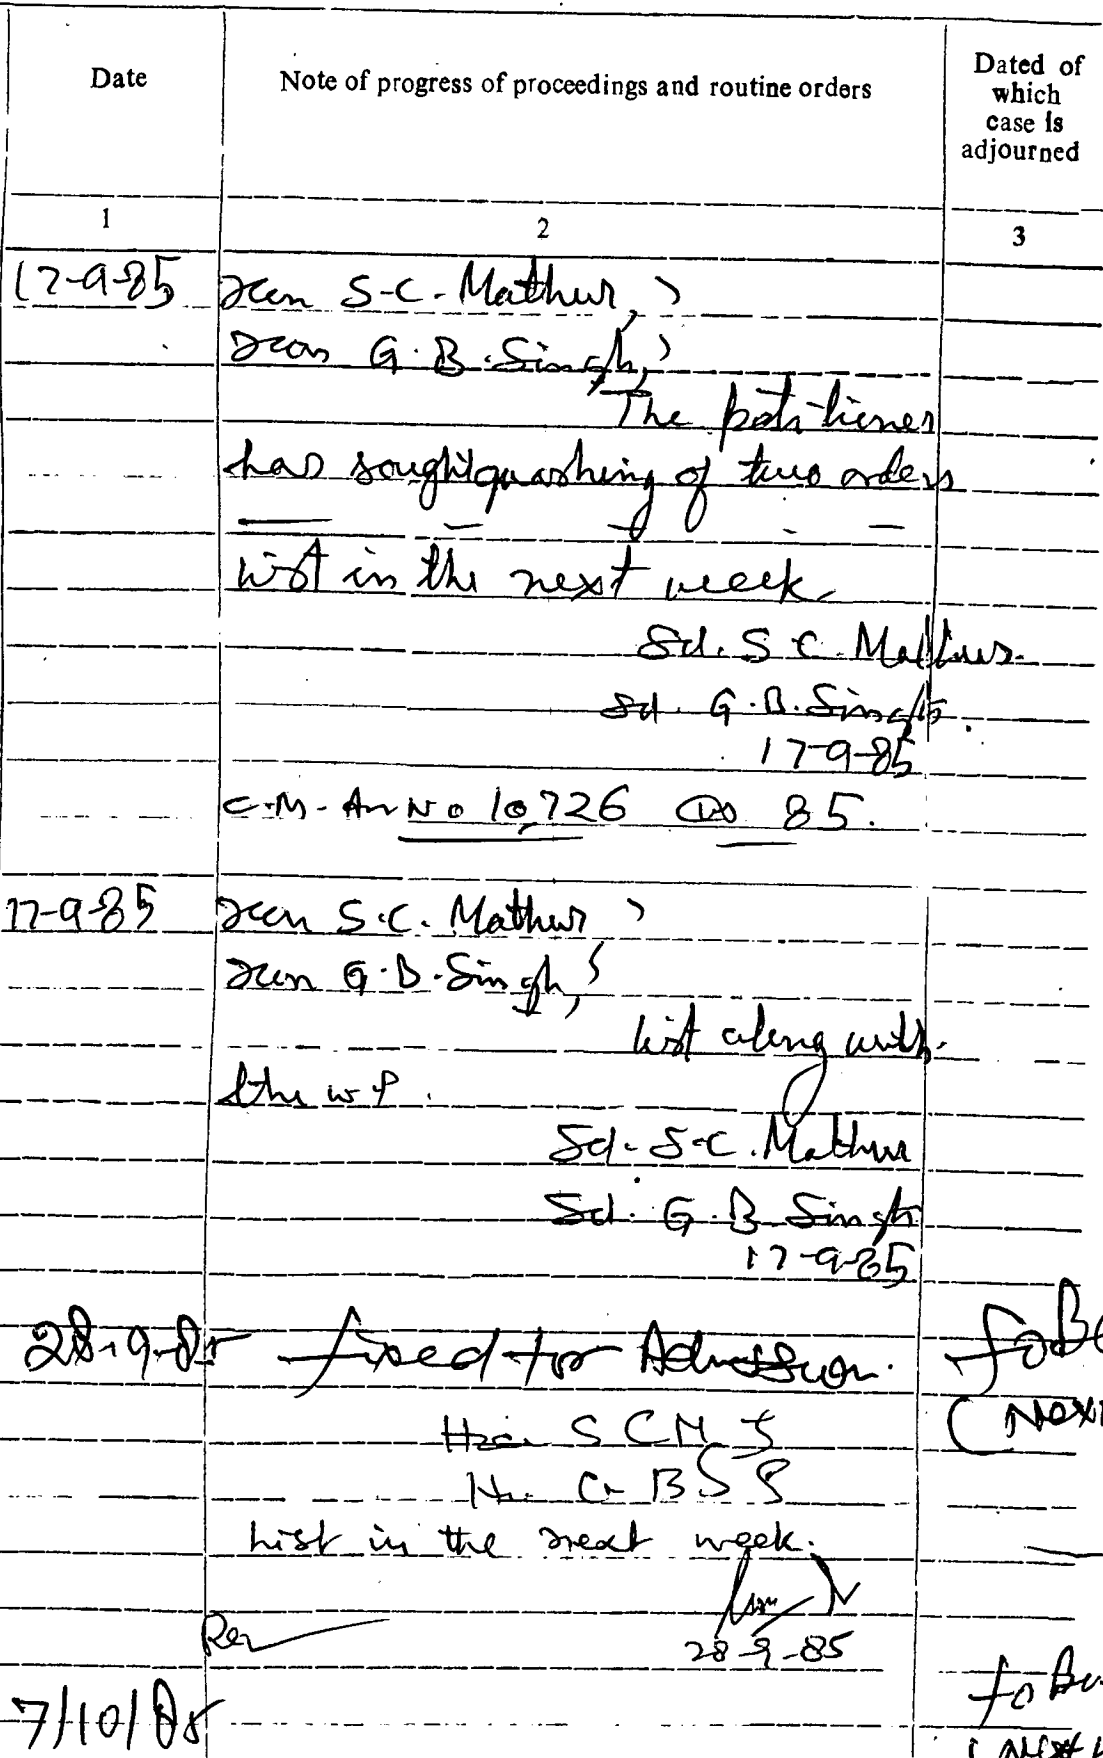 Date
Note of progress of proceedings and routine orders
Dated of
which
case is
adjourned
1
2
3
17-9-85
Hon S.C. Mathur, J
Hon G.B. Singh, J
The petitioner
has sought quashing of two orders
List in the next week.
Sd. S.C. Mathur.
Sd. G.B. Singh.
17-9-85
C.M. An No 10,726 of 85.
17-9-85
Hon S.C. Mathur J
Hon G.B. Singh, J
List along with
the w P.
Sd. S.C. Mathur
Sd. G.B. Singh
17-9-85
28-9-85
fixed for Admission.
Hon. S C M J
Hon G B S J
List in the next week.
28-9-85
7/10/85